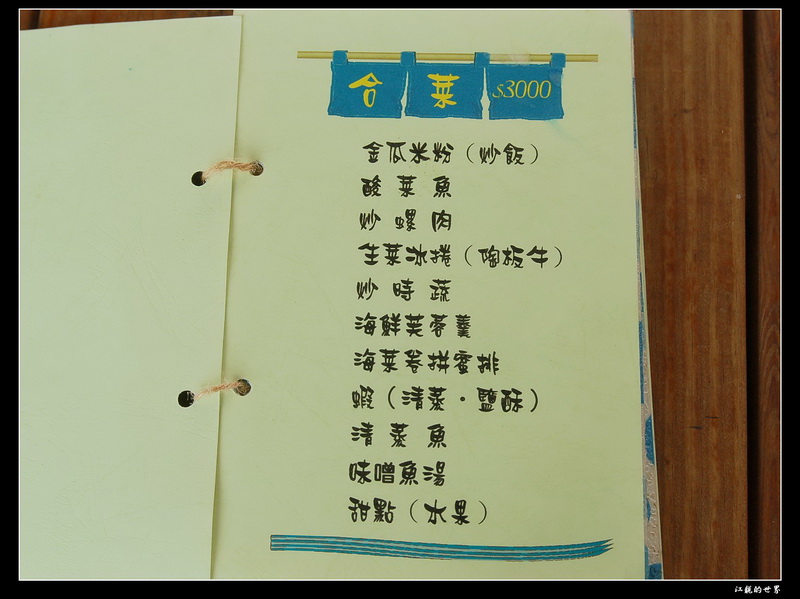 合菜 $3000
金瓜米粉（炒飯）
酸菜魚
炒螺肉
生菜冰捲（陶板牛）
炒時蔬
海鮮芙蓉羹
海菜卷拼蜜排
蝦（清蒸・鹽酥）
清蒸魚
味噌魚湯
甜點（水果）
的世界